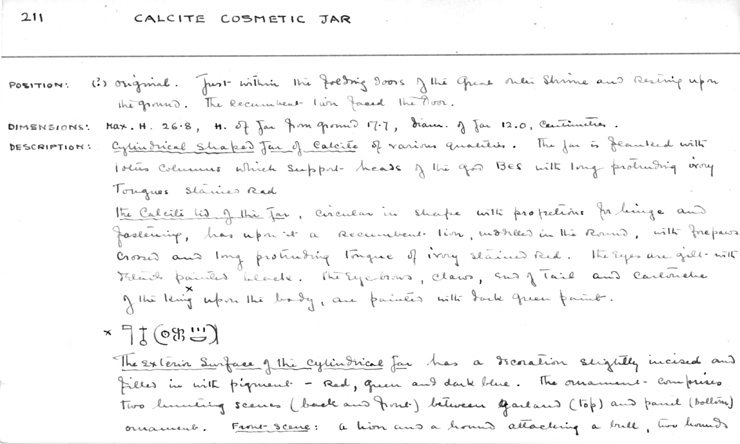 211 CALCITE COSMETIC JAR
POSITION: (?) original. Just within the folding doors of the Great outer Shrine and resting upon
the ground. The recumbent lion faced the door.
DIMENSIONS: Max. H. 26.8, H. of Jar from ground 17.7, diam. of Jar 12.0, Centimetres.
DESCRIPTION: Cylindrical shaped Jar of Calcite of various qualities. The jar is flanked with
lotus columns which support heads of the god Bes with long protruding ivory
tongues stained red
The Calcite lid of the Jar, circular in shape with projections for hinge and
fastening, has upon it a recumbent lion, modelled in the round, with forepaws
crossed and long protruding tongue of ivory stained red. The eyes are gilt with
details painted black. The eyebrows, claws, end of tail and cartouche
of the King x upon the body, are painted with dark green paint.
x 𓊹𓄤(𓇳𓆣𓏥𓎟)
The exterior surface of the cylindrical Jar has a decoration slightly incised and
filled in with pigment – red, green and dark blue. The ornament comprises
two hunting scenes (back and front) between garland (top) and panel (bottom)
ornament. Front-scene: a lion and a hound attacking a bull, two hounds